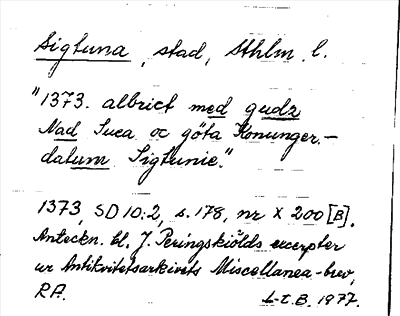 Sigtuna, stad, Sthlm. l.
"1373. albrict med gudz
Nad Suea oc göta Konunger. –
datum Sigtunie."
1373, SD 10:2, s. 178, nr X 200 [B].
Anteckn. bl. J. Peringskiölds excerpter
ur Antikvitetsarkivets Miscellanea-brev,
RA.
L-t. B. 1977.